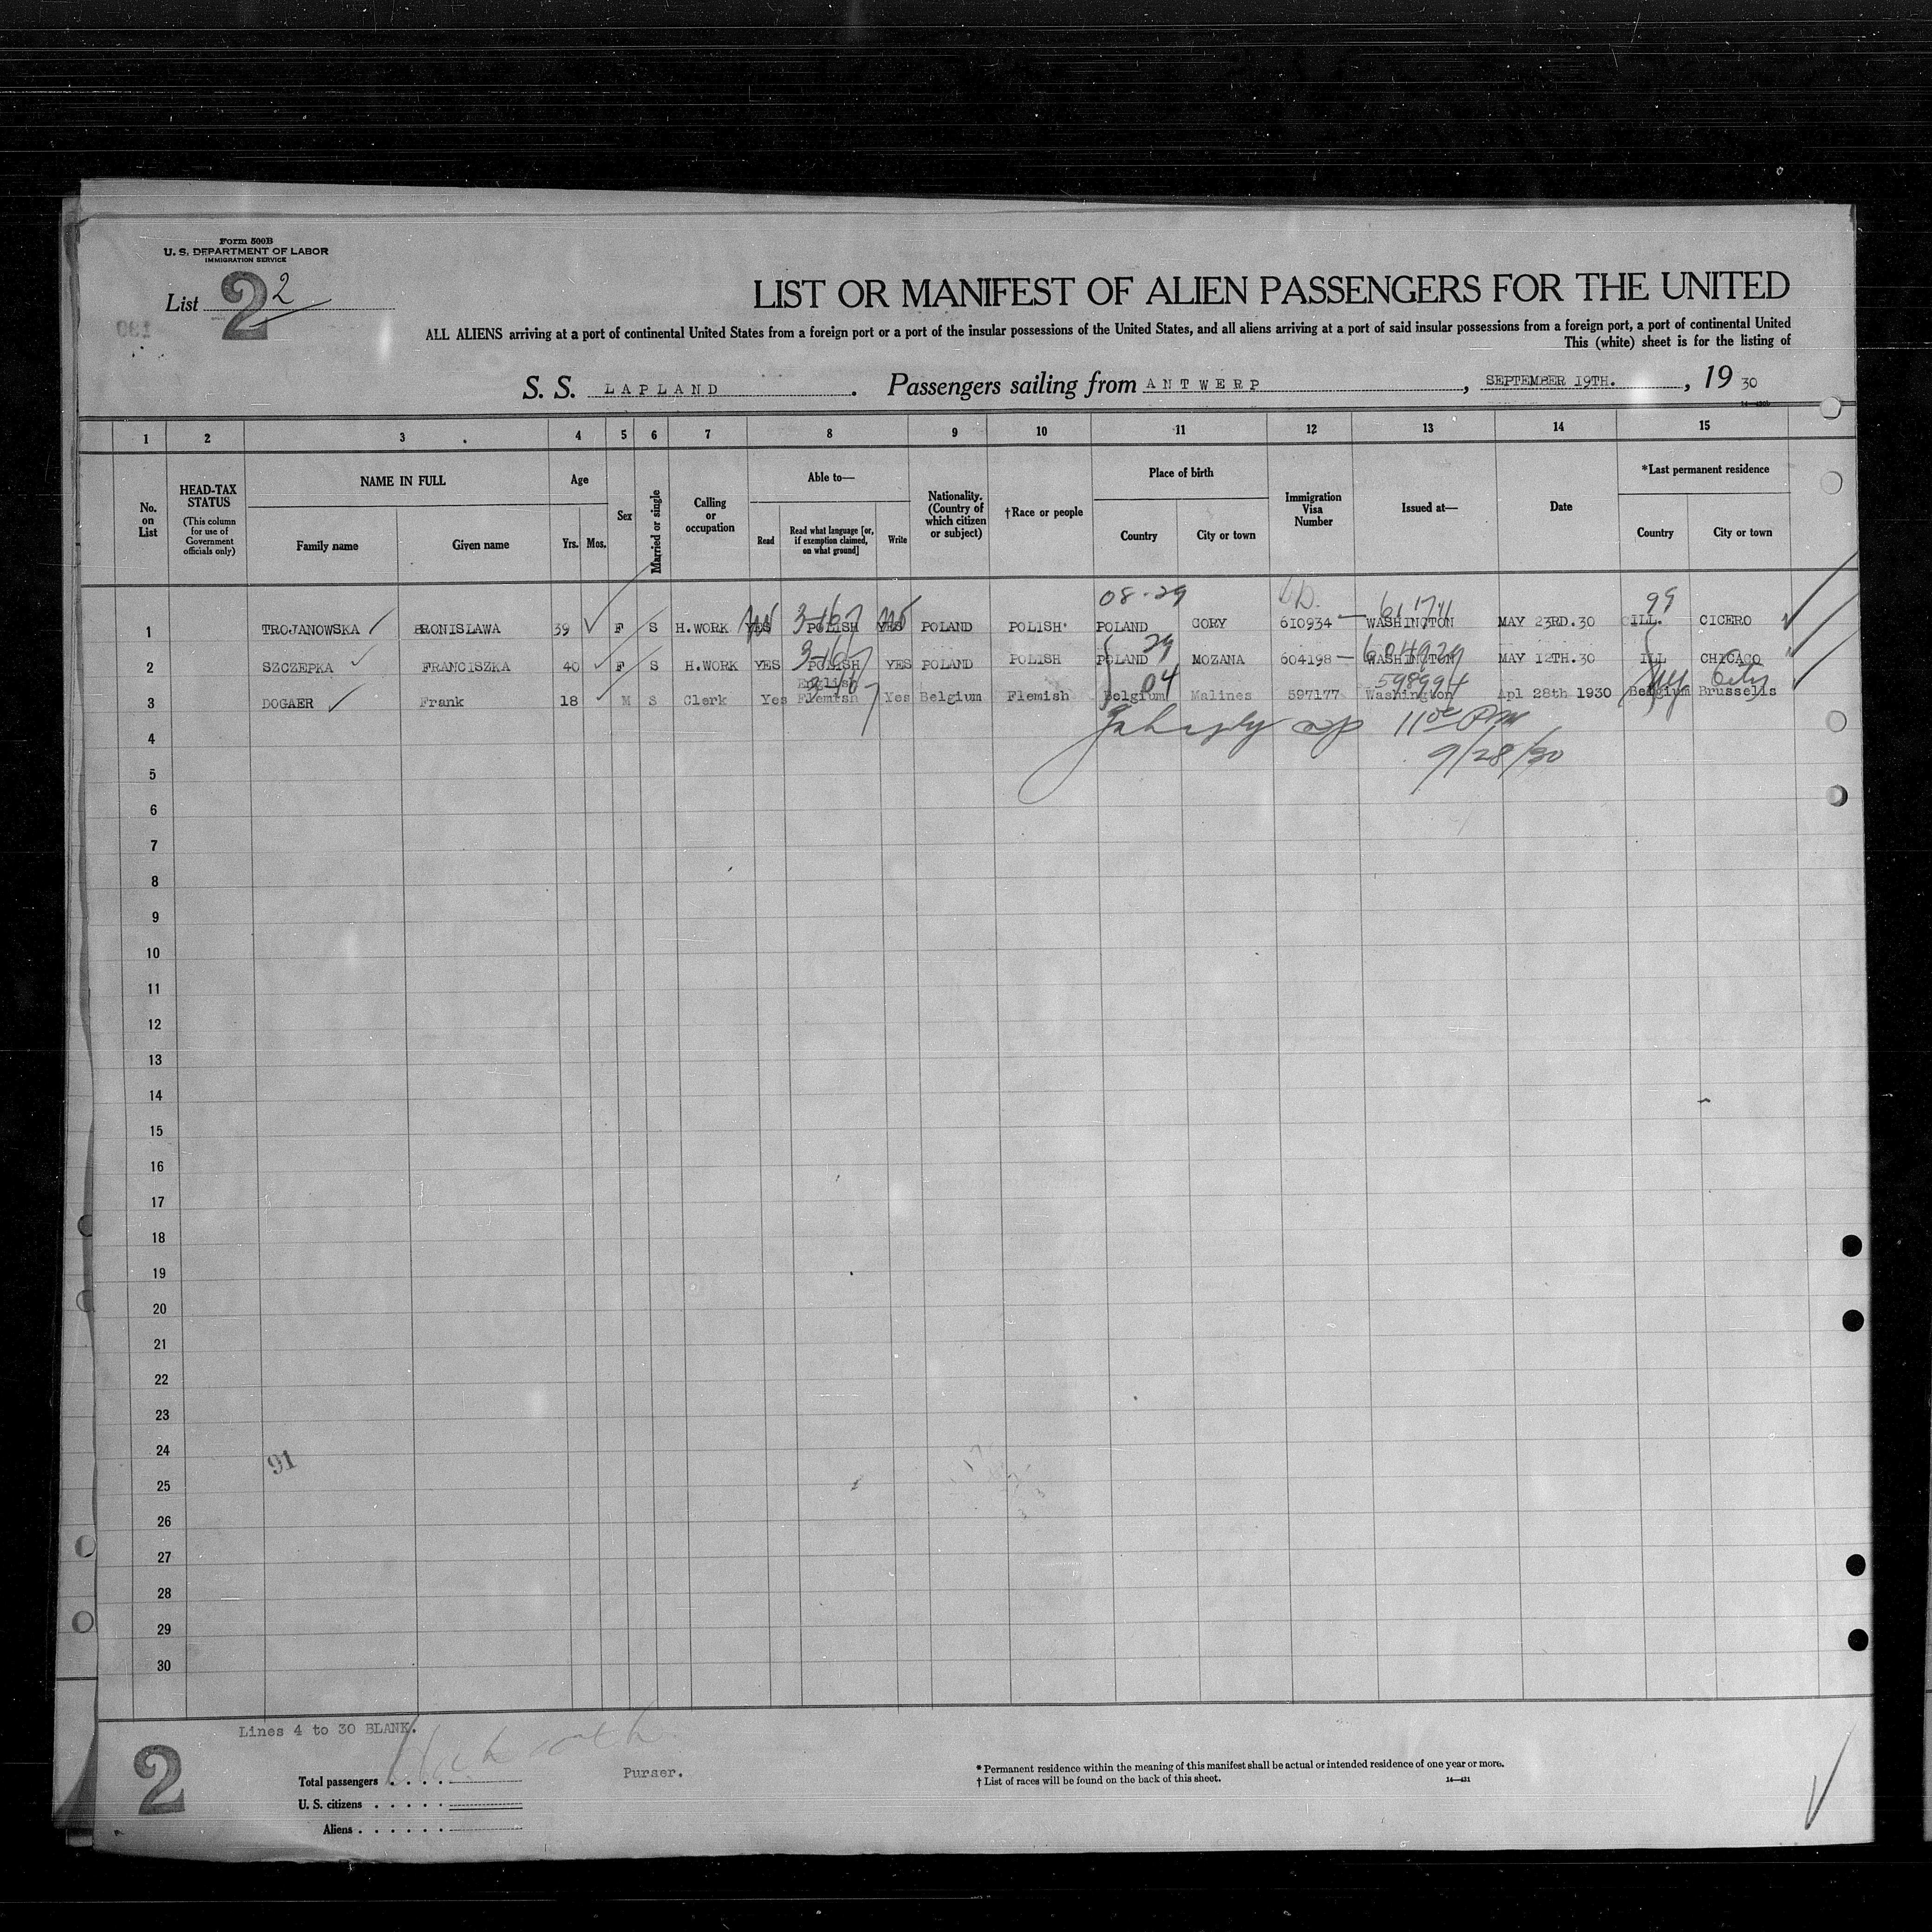 Form 500B
U. S. DEPARTMENT OF LABOR
IMMIGRATION SERVICE
List 2 2
LIST OR MANIFEST OF ALIEN PASSENGERS FOR THE UNITED
ALL ALIENS arriving at a port of continental United States from a foreign port or a port of the insular possessions of the United States, and all aliens arriving at a port of said insular possessions from a foreign port, a port of continental United
This (white) sheet is for the listing of
S. S. LAPLAND. Passengers sailing from ANTWERP, SEPTEMBER 19TH., 19 30
1 2 3 4 5 6 7 8 9 10 11 12 13 14 15
No. on List
HEAD-TAX STATUS (This column for use of Government officials only)
NAME IN FULL
Family name Given name
Age
Yrs. Mos.
Sex
Married or single
Calling or occupation
Able to—
Read Read what language [or, if exemption claimed, on what ground] Write
Nationality. (Country of which citizen or subject)
†Race or people
Place of birth
Country City or town
Immigration Visa Number
Issued at—
Date
*Last permanent residence
Country City or town
08-29 99
1 TROJANOWSKA BRONISLAWA 39 F S H.WORK YES POLISH YES POLAND POLISH POLAND CORY 610934 WASHINGTON MAY 23RD.30 ILL. CICERO
29 604929
2 SZCZEPKA FRANCISZKA 40 F S H.WORK YES POLISH YES POLAND POLISH POLAND MOZANA 604198 WASHINGTON MAY 12TH.30 ILL CHICAGO
English 04 598994 NY City
3 DOGAER Frank 18 M S Clerk Yes Flemish Yes Belgium Flemish Belgium Malines 597177 Washington Apl 28th 1930 Belgium Brussells
4 11 PM
9/28/30
5
6
7
8
9
10
11
12
13
14
15
16
17
18
19
20
21
22
23
24
91
25
26
27
28
29
30
Lines 4 to 30 BLANK.
2
Total passengers
Purser.
U. S. citizens
Aliens
* Permanent residence within the meaning of this manifest shall be actual or intended residence of one year or more.
† List of races will be found on the back of this sheet. 14—421